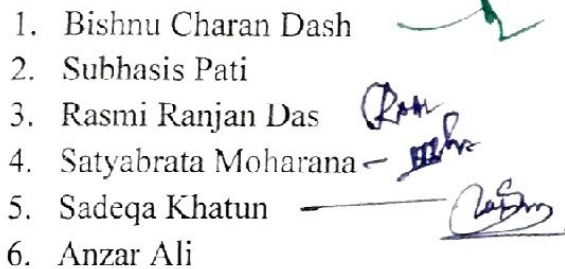 1. Bishnu Charan Dash
2. Subhasis Pati
3. Rasmi Ranjan Das
4. Satyabrata Moharana –
5. Sadeqa Khatun —
6. Anzar Ali